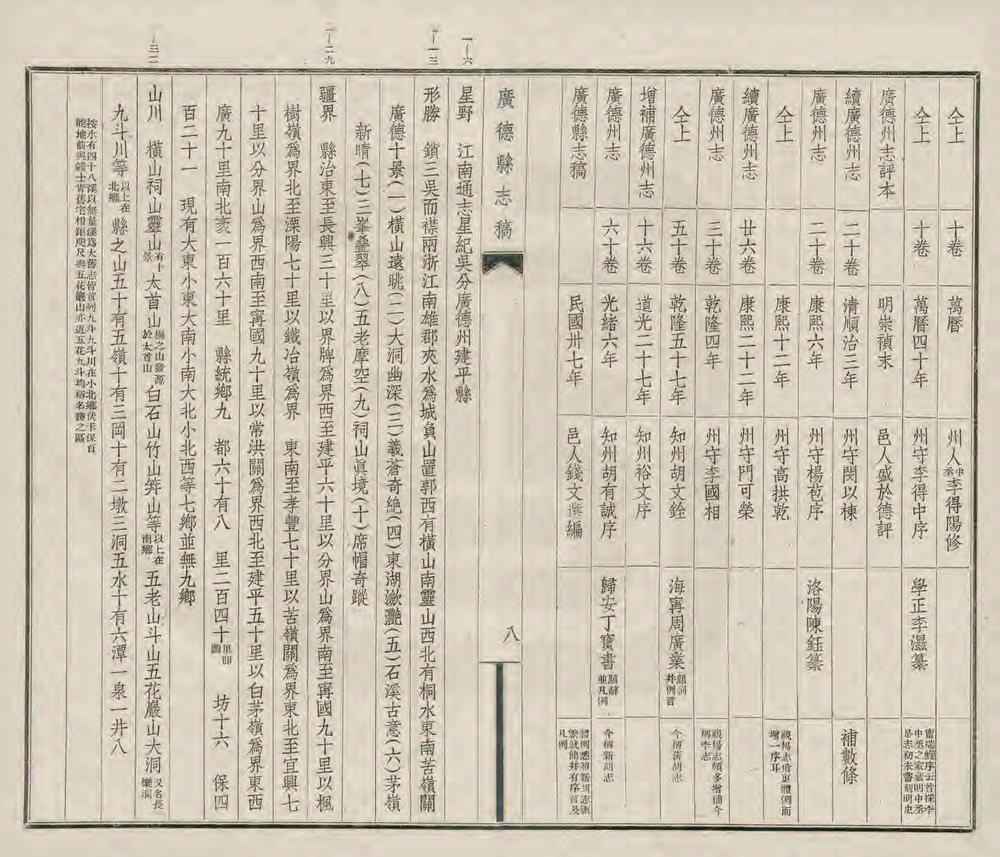 仝上 十卷 萬曆 州人中丞李得陽修
仝上 十卷 萬曆四十年 州守李得中序 學正李滋纂
廣德州志評本 明崇禎末 邑人盛於德評
續廣德州志 二十卷 清順治三年 州守閔以棟 補數條
廣德州志 二十卷 康熙六年 州守楊苞序 洛陽陳鈺纂
仝上 康熙十二年 州守高拱乾 視楊志稍更體例而增一序耳
續廣德州志 廿六卷 康熙二十二年 州守門可榮
廣德州志 三十卷 乾隆四年 州守李國相 視楊志頗多增補今稱李志
仝上 五十卷 乾隆五十七年 知州胡文銓 海寧周廣業 今稱舊胡志
增補廣德州志 十六卷 道光二十七年 知州裕文序
廣德州志 六十卷 光緒六年 知州胡有誠序 歸安丁寶書 題辭並凡例 今稱新胡志
廣德縣志稿 民國卅七年 邑人錢文撰編
廣德縣志稿 八
一—六
星野 江南通志星紀吳分廣德州建平縣
一—一三
形勝 鎖三吳而襟兩浙江南雄郡夾水爲城負山置郭西有橫山南靈山西北有桐水東南苦嶺關
廣德十景(一)橫山遠眺(二)大洞幽深(三)羲蒼奇絶(四)東湖瀲灔(五)石溪古意(六)茅嶺
新晴(七)三峯疊翠(八)五老摩空(九)祠山眞境(十)席帽奇蹤
一—二九
疆界 縣治東至長興三十里以界牌爲界西至建平六十里以分界山爲界南至寗國九十里以楓
樹嶺爲界北至溧陽七十里以鐵冶嶺爲界 東南至孝豐七十里以苦嶺關爲界東北至宜興七
十里以分界山爲界西南至寗國九十里以常洪關爲界西北至建平五十里以白茅嶺爲界東西
廣九十里南北袤一百六十里 縣統鄉九 都六十有八 里二百四十里即圖 坊十六 保四
百二十一 現有大東小東大南小南大北小北西等七鄉並無九鄉
—三二
山川 橫山祠山靈山有十景太首山桐之山發源於太首山白石山竹山笄山等以上在南鄉五老山斗山五花巖山大洞又名長樂洞
九斗川等以上在北鄉縣之山五十有五嶺十有三岡十有二墩三洞五水十有六潭一泉一井八
按水有四十八溪以無量溪爲大舊志皆首列九斗九斗川在小北鄉伏丰保